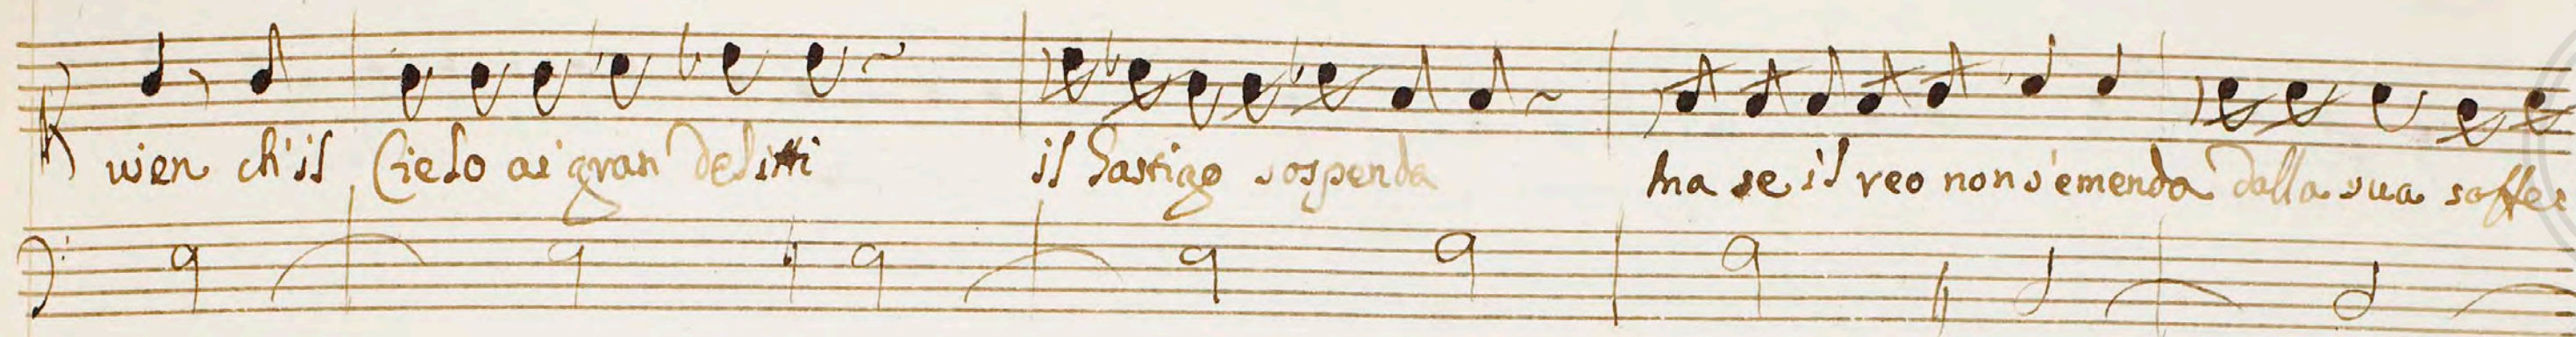 uien ch'il Cielo ai gran delitti il Gastigo sospenda ma se il reo non s'emenda dalla sua soffer